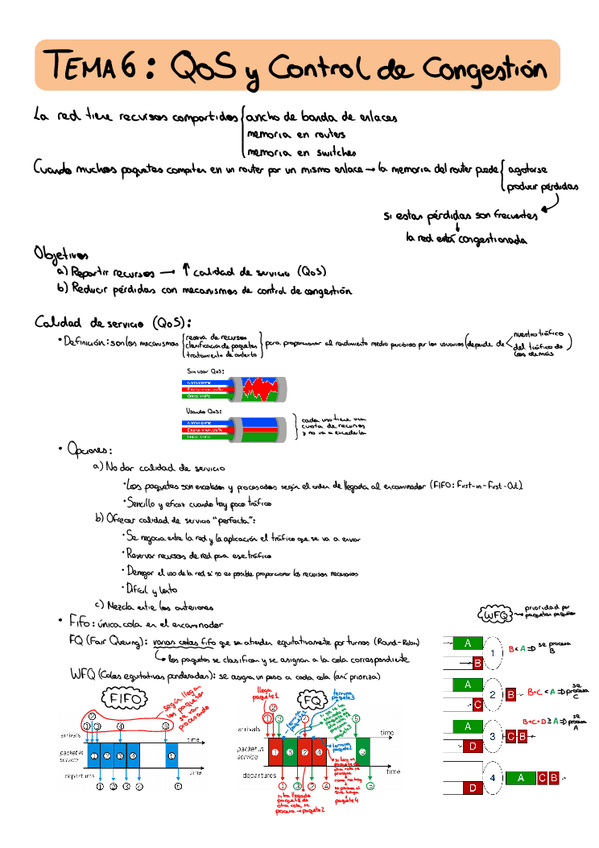 TEMA 6: QoS y Control de Congestión
La red tiene recursos compartidos ancho de banda de enlaces
memoria en routes
memoria en switches
Cuando muchos paquetes compiten en un router por un mismo enlace → la memoria del router puede agotarse
producir pérdidas
si estas pérdidas son frecuentes
la red está congestionada
Objetivos
a) Repartir recursos → ↑ calidad de servicio (QoS)
b) Reducir pérdidas con mecanismos de control de congestión
Calidad de servicio (QoS):
• Definición: son los mecanismos reserva de recursos
clasificación de paquetes
tratamiento de
para proporcionar el rendimiento medio por los usuarios (depende de nuestro tráfico
del tráfico de
los demás)
Sin usar QoS:
Usando QoS:
cada uso tiene una
cuota de recursos
y no va a excederla
• Opciones:
a) No dar calidad de servicio
• Los paquetes son encolados y procesados según el orden de llegada al encaminador (FIFO: First-in-First-Out)
• Sencillo y eficaz cuando hay poco tráfico
b) Ofrecer calidad de servicio "perfecta":
• Se negocia entre la red y la aplicación el tráfico que se va a enviar
• Reservar recursos de red para ese tráfico
• Denegar el uso de la red si no es posible proporcionar los recursos necesarios
• Difícil y lento
c) Mezcla entre las anteriores
• Fifo: única cola en el encaminador
FQ (Fair Queuing): varias colas fifo que se atienden equitativamente por turnos (Round-Robin)
los paquetes se clasifican y se asignan a la cola correspondiente
WFQ (Colas equitativas ponderadas): se asigna un peso a cada cola (así prioriza)
WFQ → prioridad por
paquetes pequeños
A
B
1
B < A ⇒ se procesa
B
A
C
2
B
B+C < A ⇒ se procesa
C
A
D
3
C B
B+C+D ≥ A ⇒ se procesa
A
D
4
A C B
FIFO
según llegan
los paquetes
se van
procesando
arrivals
time
packet in
service
time
departures
FQ
llega
paquete 1
termina
paquete 3
arrivals
time
packet in
service
time
departures
si ha llegado
paquete de
otra cola, se
procesa → paquete 2
paquete 4